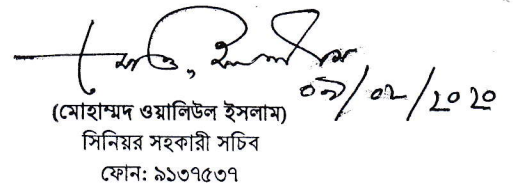 ০৯/০২/২০২০
(মোহাম্মদ ওয়ালিউল ইসলাম)
সিনিয়র সহকারী সচিব
ফোন: ৯১৩৭৫৩৭